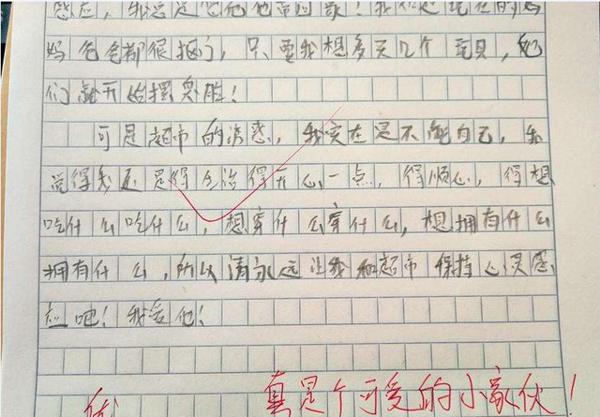 感应,我总是它他带回家!我但是现在的妈
妈爸爸都很抠门,只要我想多买几个玩具,她
们就开始摆臭脸!
可是超市的诱惑,我实在是不能自已,我
觉得我还是得生活得开心一点,得顺心,得想
吃什么吃什么,想穿什么穿什么,想拥有什么
拥有什么,所以请永远让我和超市保持心灵感
应吧!我爱他!
真是个可爱的小家伙!